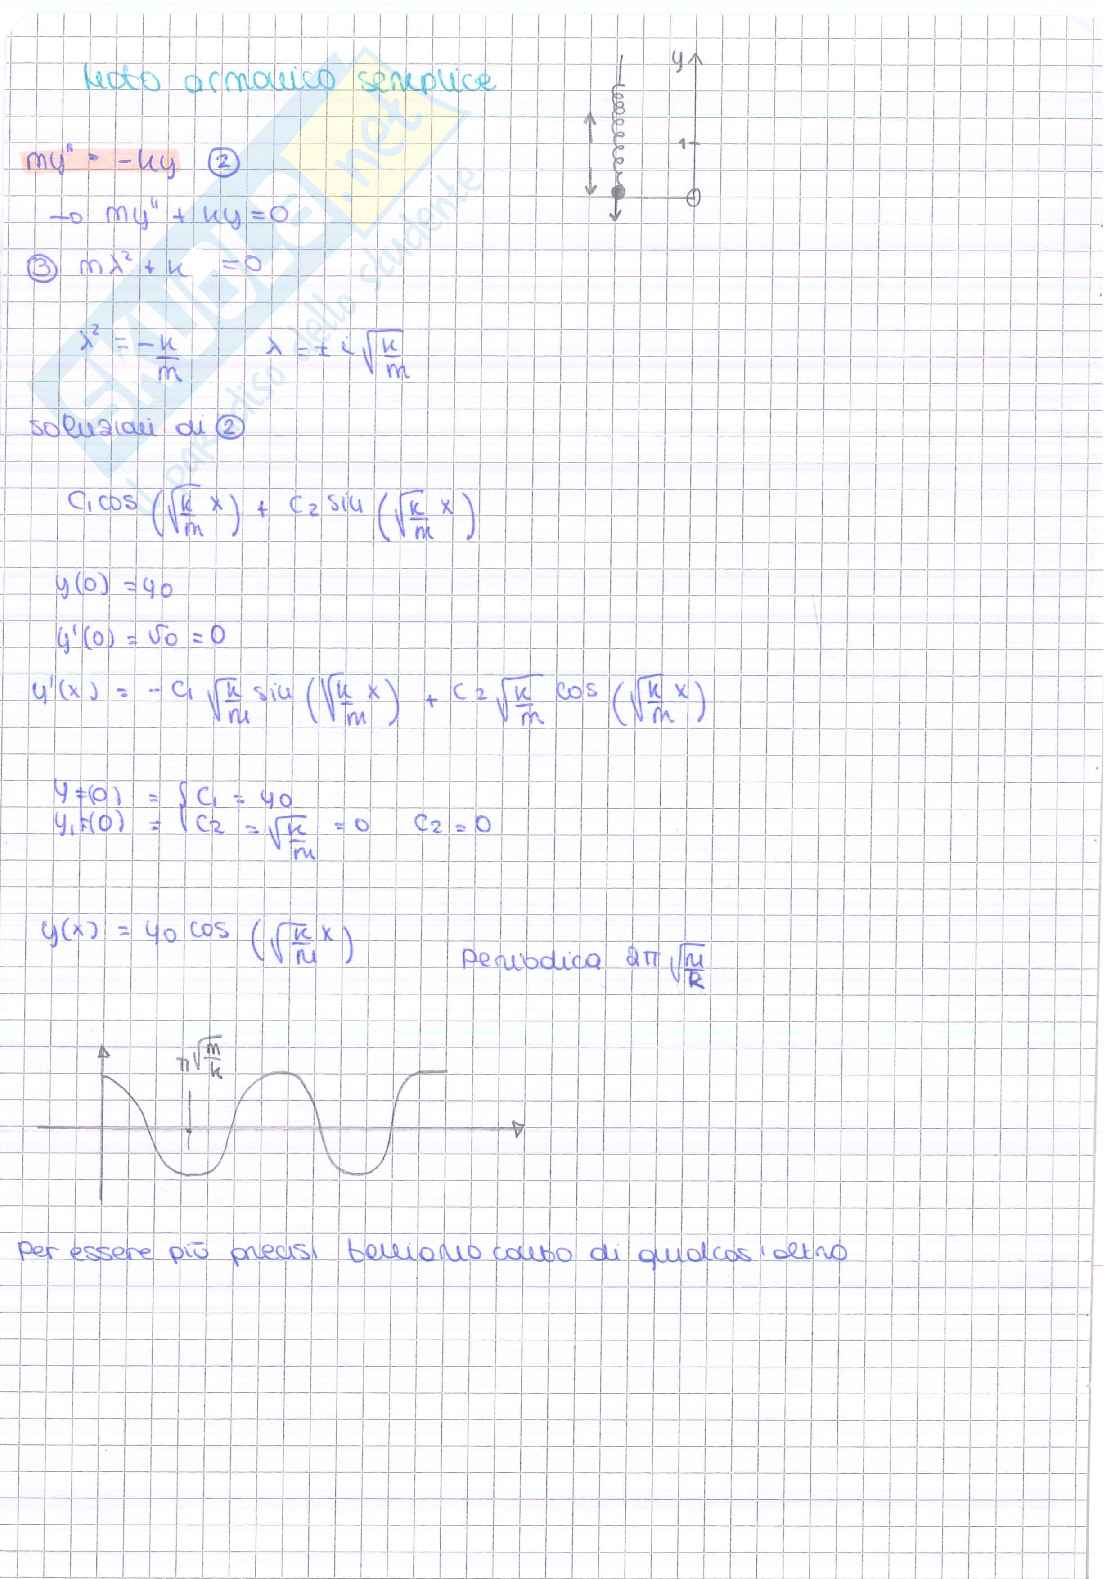 Moto armonico semplice
y
1
my" = -ky ②
→ my" + ky = 0
③ mλ² + k = 0
λ² = -k/m λ = ± i √(k/m)
soluzioni di ②
C₁ cos (√(k/m) x) + C₂ sin (√(k/m) x)
y(0) = y0
y'(0) = v0 = 0
y'(x) = -C₁ √(k/m) sin (√(k/m) x) + C₂ √(k/m) cos (√(k/m) x)
y = (0) = { C₁ = y0
C₂ = √(k/m) = 0 C₂ = 0
y(x) = y0 cos (√(k/m) x)
Periodica 2π √(m/k)
π √(m/k)
per essere più precisi teniamo conto di qualcos'altro
SKUOLA.net
il paradiso dello studente